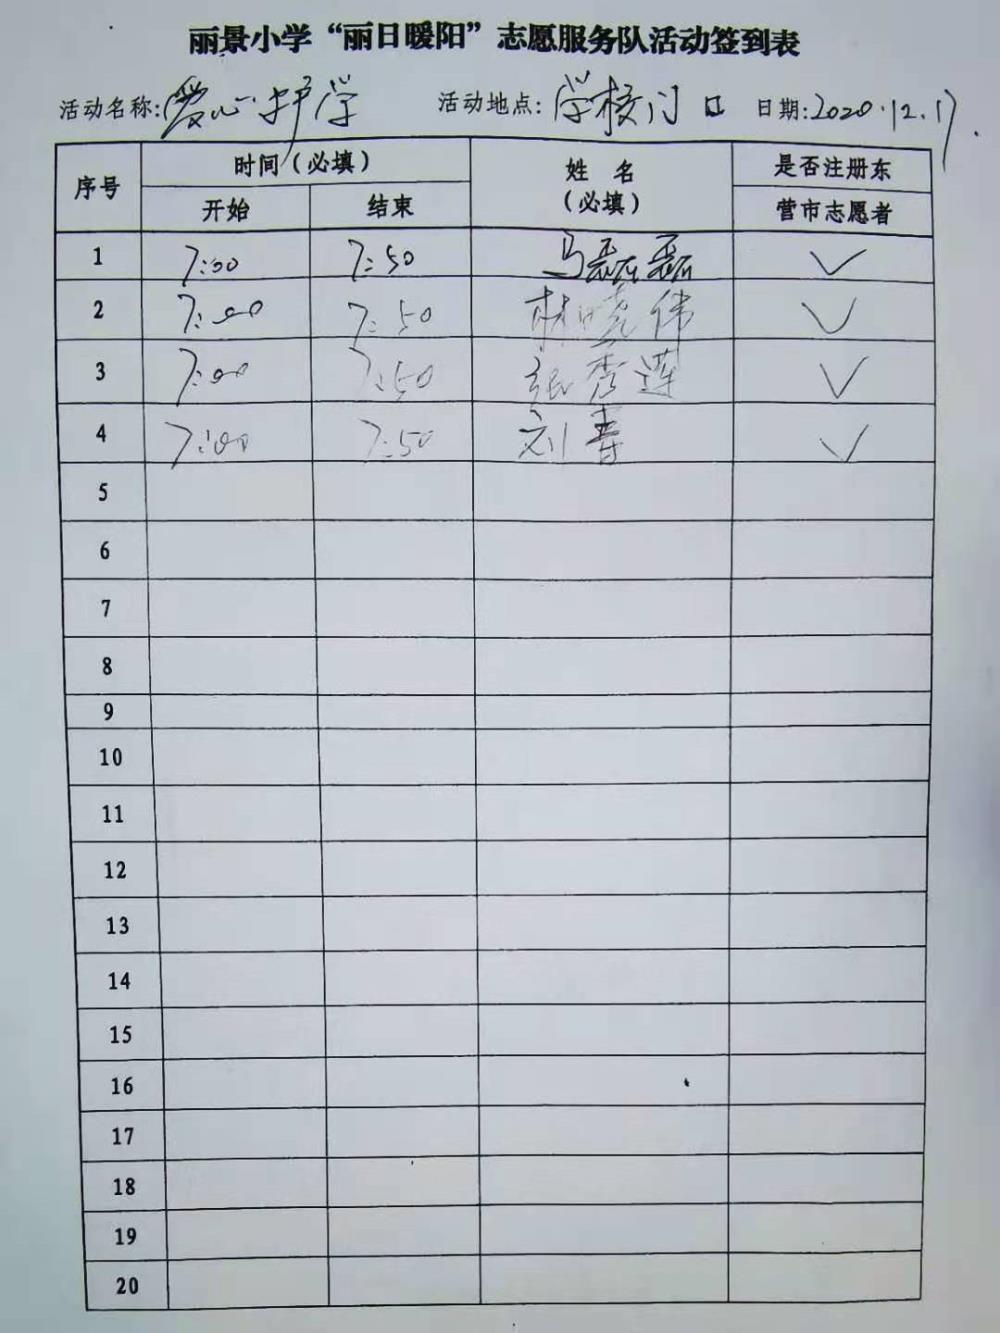 丽景小学“丽日暖阳”志愿服务队活动签到表
活动名称:爱心护学 活动地点:学校门口 日期:2020.12.17.
序号 时间(必填) 姓名(必填) 是否注册东营市志愿者
开始 结束
1 7:00 7:50 马磊磊 ✓
2 7:00 7:50 林晓伟 ✓
3 7:00 7:50 张秀莲 ✓
4 7:00 7:50 刘春 ✓
5
6
7
8
9
10
11
12
13
14
15
16
17
18
19
20